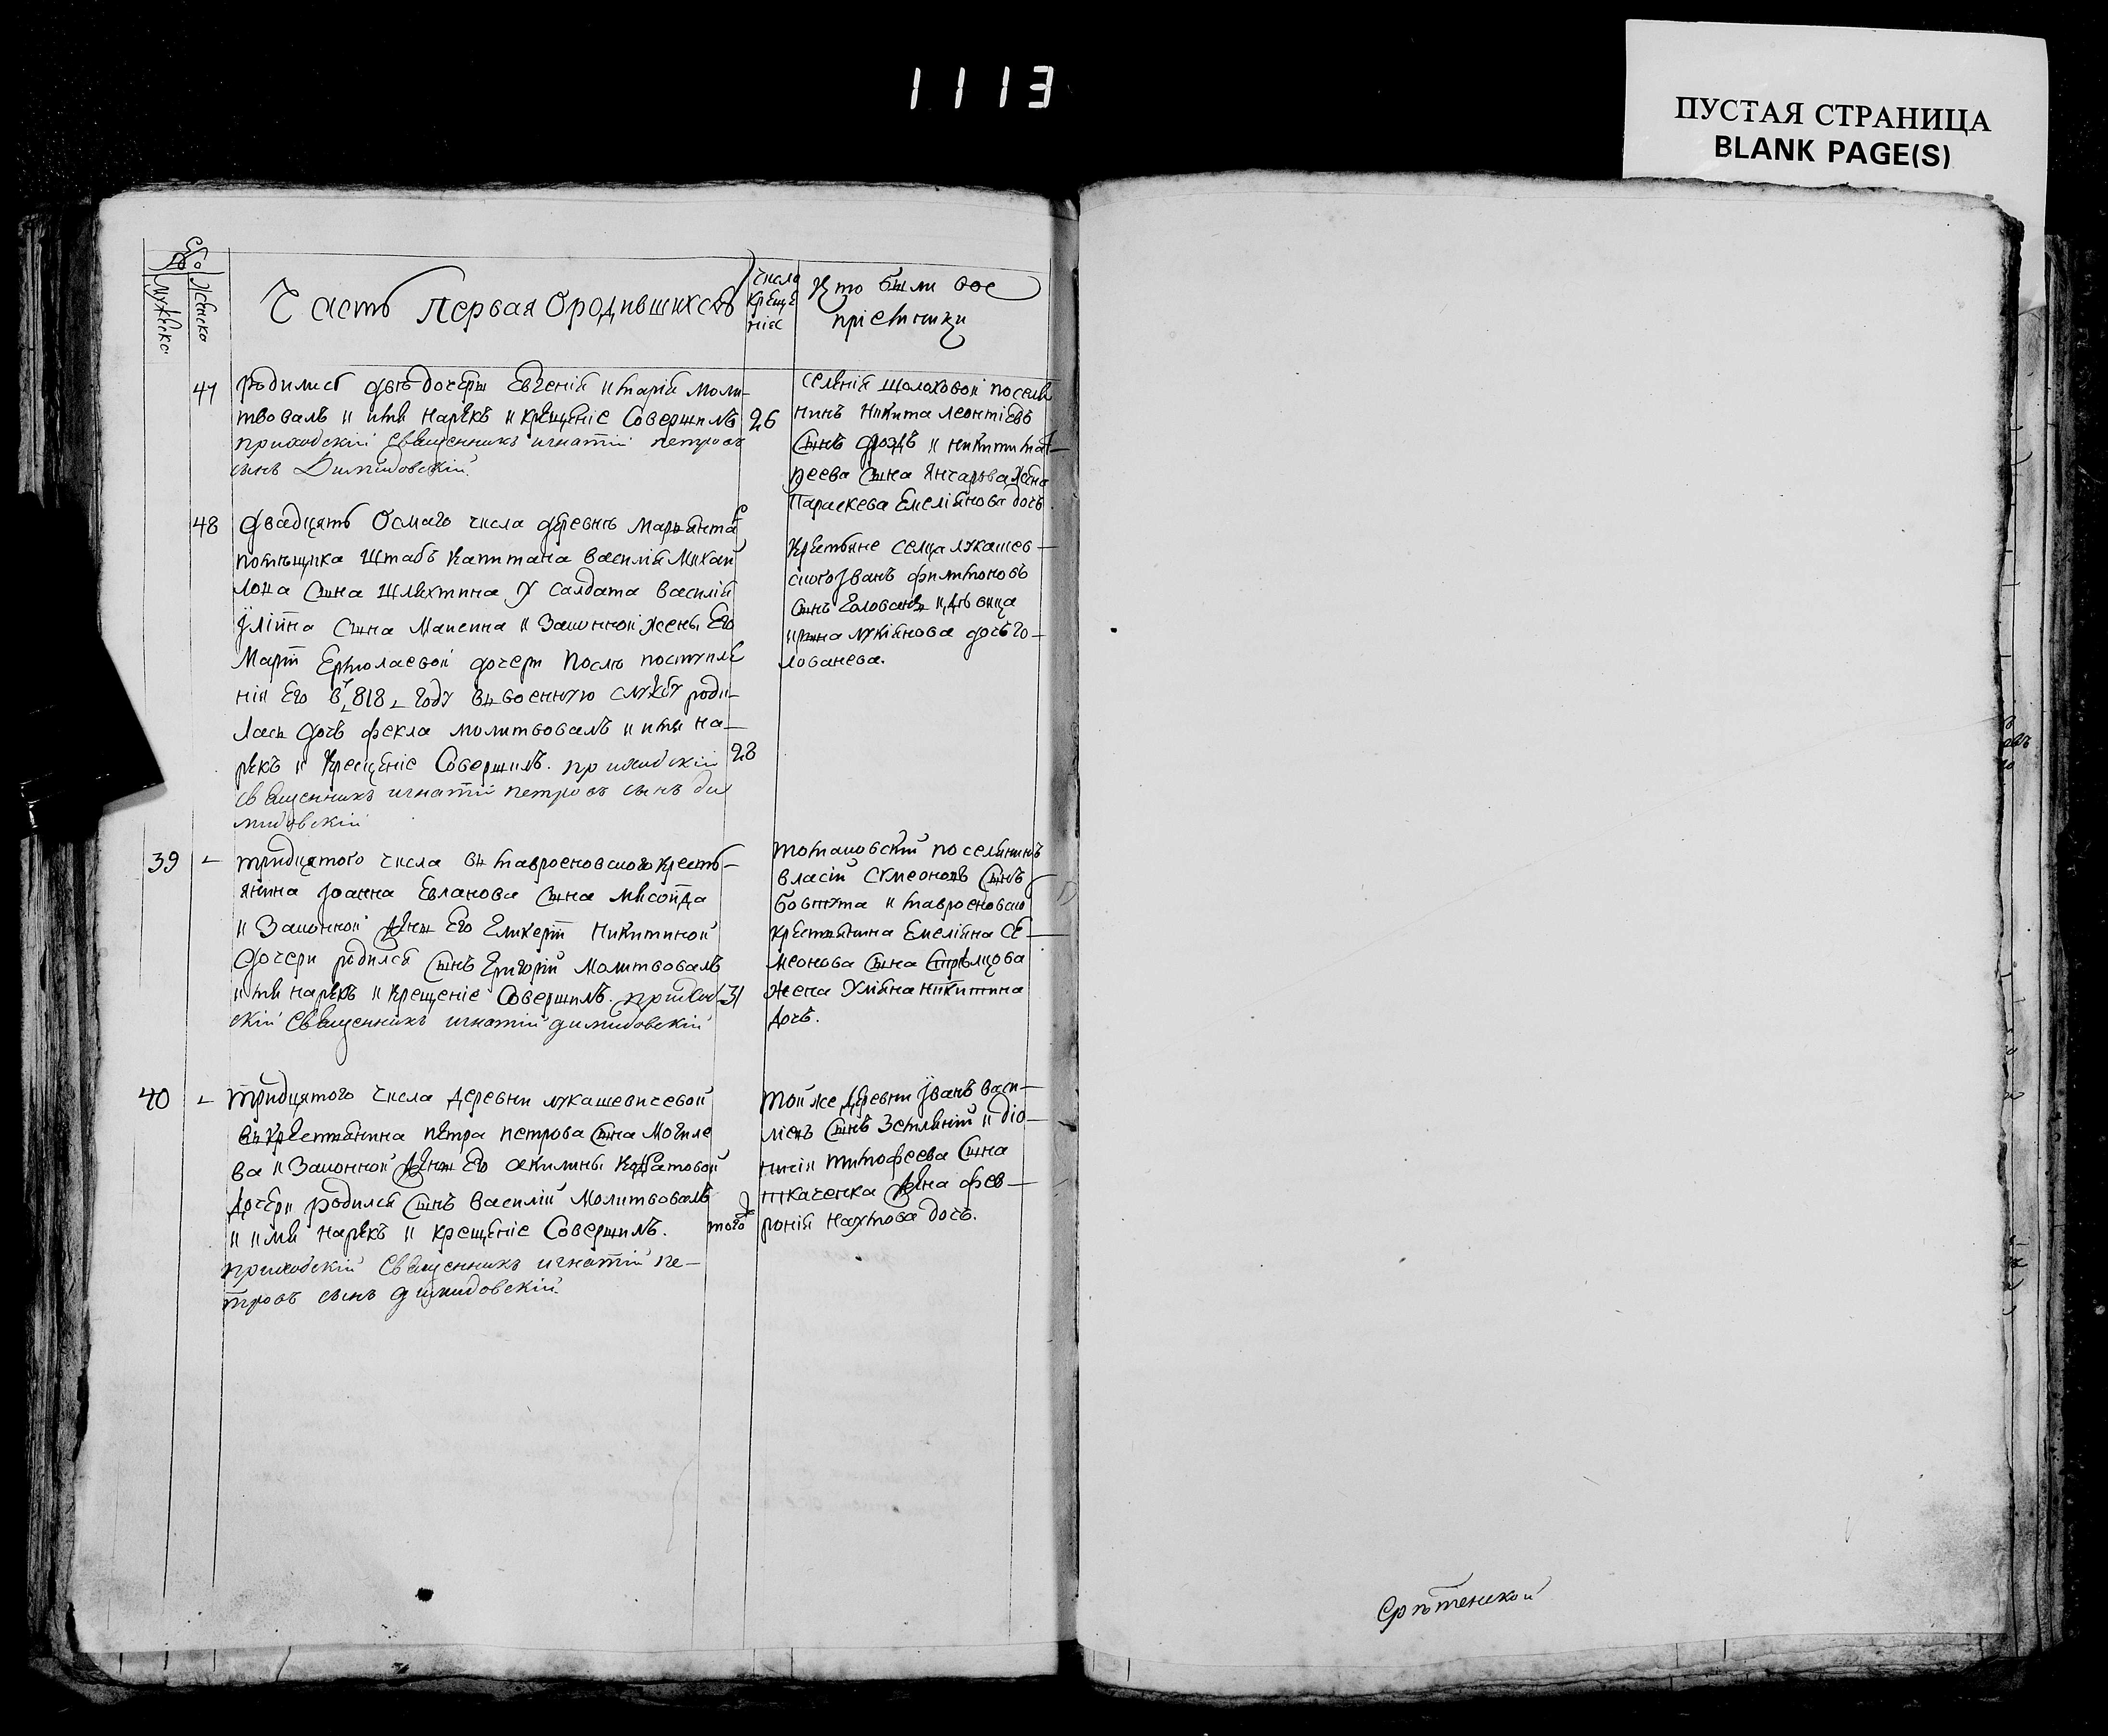 1113
ПУСТАЯ СТРАНИЦА
BLANK PAGE(S)
Мужеска
Женска
Часть Первая о родившихсѧ
Число
Креще
нія
Кто были вос
пріемники
47
родились двѣ дочери Евгенія и Марія моли-
твовалъ и имя нарекъ и крещеніе Совершилъ
26
приходскій Священникъ игнатій петровъ
сынъ Димидовскій
селенія Шолоховой поселя
нинъ Никита Леонтіевъ
Сынъ и Никити
Сына Янчарова жена
Параскева Емеліянова дочь
48
Двадцять Осмаго числа деревнѣ
помѣщика Штабъ Капитана Василія Михаи
лова Сына Шляхтина У Салдата Василія
Иліина Сына и Законной жены Его
Марѳи Ермолаевой дочери послѣ поступле
нія Его в 818 году въ военную службу роди-
лась дочь фекла молитвовалъ и имя на-
рекъ и Крещеніе Совершилъ. приходскій
28
священникъ игнатій петровъ сынъ ди
мидовскій
Крестьяне селца лукашев-
ского Іванъ филимоновъ
Сынъ Голованевъ и дѣвица
ирина лукіянова дочь го-
лованева.
39
-
тридцятого числа въ тавроеновского кресть-
янина Іоанна Евланова Сына
и Законной жены Его Гликеріи Никитиной
Дочери родился Сынъ Григорій Молитвовалъ
и имя нарекъ и Крещеніе Совершилъ. приход
31
скій Священникъ игнатій димидовскій
поселянинъ
власій Сумеоновъ Сынъ
и тавроеновского
крестьянина Емеліяна Се-
меонова Сына Стрѣлцова
жена Уліяна Никитина
Дочь.
40
-
Тридцятого числа Деревни лукашевичевой
въ Крестьянина петра петрова Сына Могиле
ва и Законной жены Его акилины Кодратовой
Дочери родился Сынъ Василій Молитвовалъ
и имя нарекъ и крещеніе Совершилъ.
того
приходскій Священникъ игнатій пе-
тровъ сынъ димидовскій
Той же Деревни Іванъ Васи-
ліевъ Сынъ и Діо-
нисія Тимофеева Сына
ткаченка жена фев-
ронія Наумова дочь.
Срѣтенской